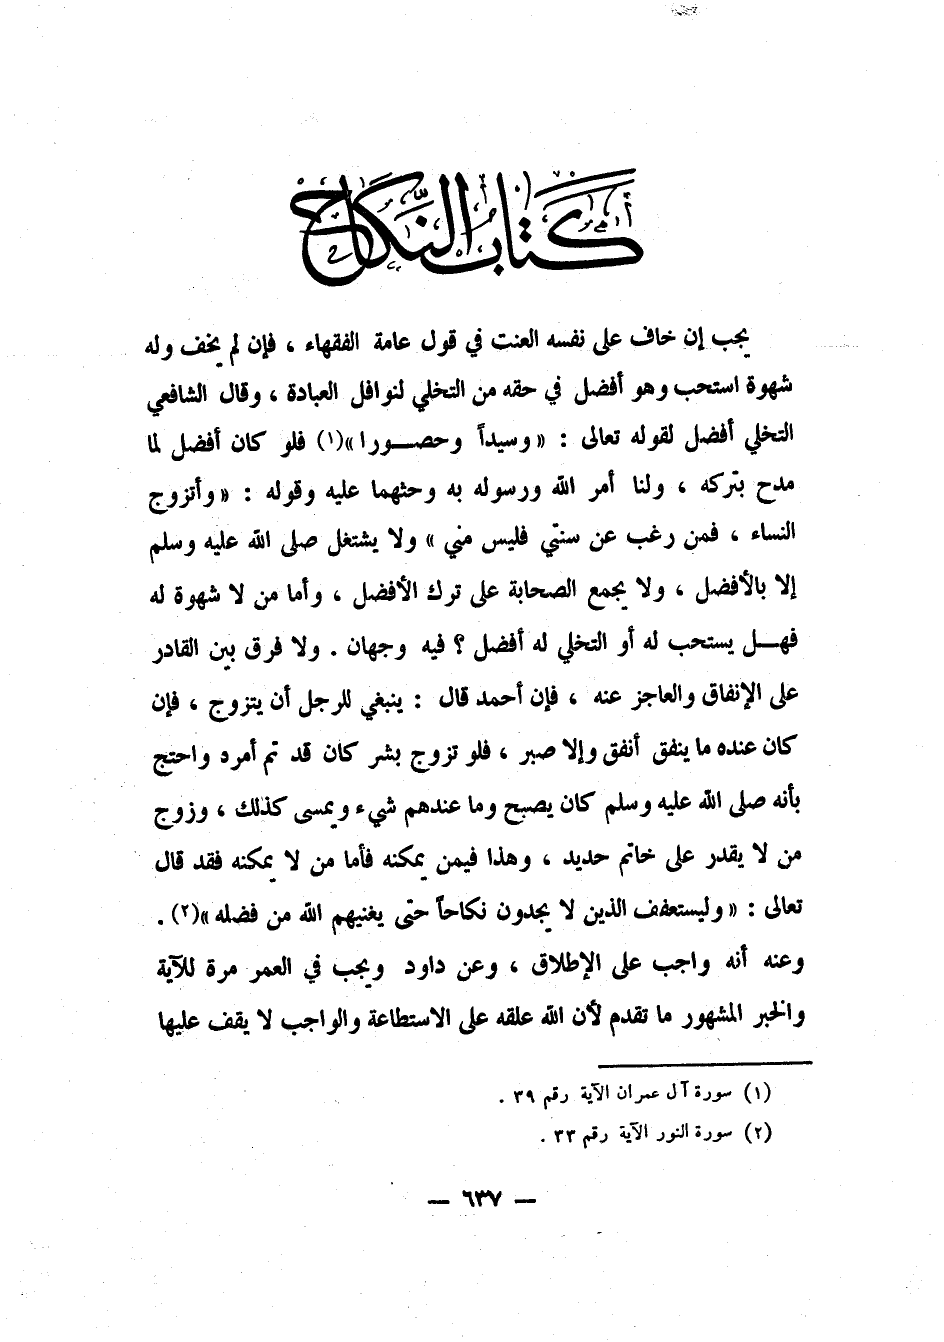 كتاب النكاح
يجب إن خاف على نفسه العنت في قول عامة الفقهاء ، فإن لم يخف وله
شهوة استحب وهو أفضل في حقه من التخلي لنوافل العبادة ، وقال الشافعي
التخلي أفضل لقوله تعالى : « وسيداً وحصـــورا »(١) فلو كان أفضل لما
مدح بتركه ، ولنا أمر الله ورسوله به وحثهما عليه وقوله : « وأتزوج
النساء ، فمن رغب عن سنتي فليس مني » ولا يشتغل صلى الله عليه وسلم
إلا بالأفضل ، ولا يجمع الصحابة على ترك الأفضل ، وأما من لا شهوة له
فهـــل يستحب له أو التخلي له أفضل ؟ فيه وجهان . ولا فرق بين القادر
على الإنفاق والعاجز عنه ، فإن أحمد قال : ينبغي للرجل أن يتزوج ، فإن
كان عنده ما ينفق أنفق وإلا صبر ، فلو تزوج بشر كان قد تم أمره واحتج
بأنه صلى الله عليه وسلم كان يصبح وما عندهم شيء ويمسى كذلك ، وزوج
من لا يقدر على خاتم حديد ، وهذا فيمن يمكنه فأما من لا يمكنه فقد قال
تعالى : « وليستعفف الذين لا يجدون نكاحاً حتى يغنيهم الله من فضله »(٢) .
وعنه أنه واجب على الإطلاق ، وعن داود ويجب في العمر مرة للآية
والخبر المشهور ما تقدم لأن الله علقه على الاستطاعة والواجب لا يقف عليها
(١) سورة آل عمران الآية رقم ٣٩ .
(٢) سورة النور الآية رقم ٣٣ .
— ٦٣٧ —